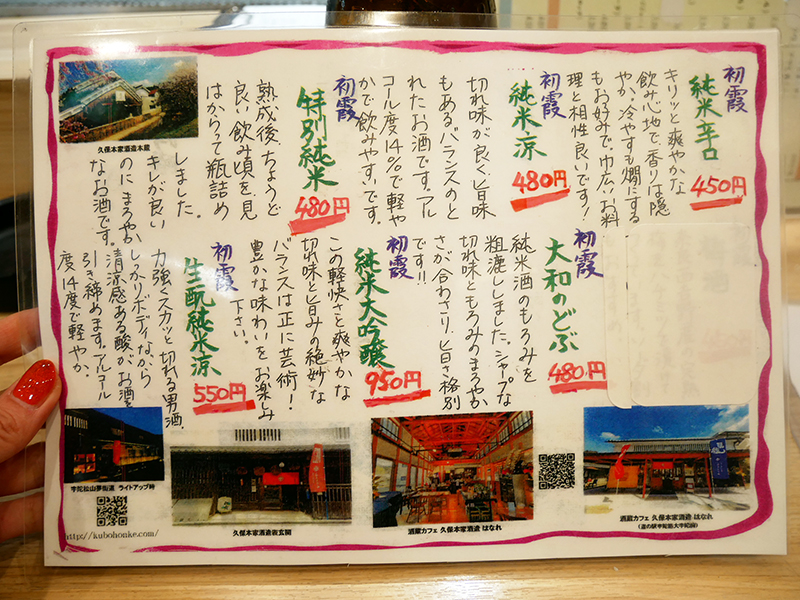 初霞
純米辛口
450円
キリッと爽やかな
飲み心地で、香りは隠
やか。冷やすも燗にする
もお好みで、巾広いお料
理と相性良いです!
初霞
純米涼
480円
切れ味が良く、旨味
もあるバランスのと
れたお酒です。アル
コール度14%で軽や
かで飲みやすいです。
初霞
特別純米
480円
熟成後、ちょうど
良い飲み頃を見
はからって瓶詰め
しました。
キレが良い
のに まろやか
なお酒です。
久保本家酒造本蔵
初霞
大和のどぶ
480円
純米酒のもろみを
粗漉ししました。シャープな
切れ味ともろみのまろやか
さが合わさり、旨さ格別
です!!
初霞
純米大吟醸
950円
この軽快さと爽やかな
切れ味と旨みの絶妙な
バランスは正に芸術!
豊かな味わいをお楽しみ
下さい。
初霞
生酛純米涼
550円
力強くスカッと切れる男酒。
しっかりボディながら
清涼感ある酸がお酒を
引き締めます。アルコール
度14度で軽やか。
宇陀松山夢街道 ライトアップ時
久保本家酒造表玄関
酒蔵カフェ 久保本家酒造 はなれ
酒蔵カフェ 久保本家酒造 はなれ
(道の駅宇陀路大宇陀前)
http://kubohonke.com/